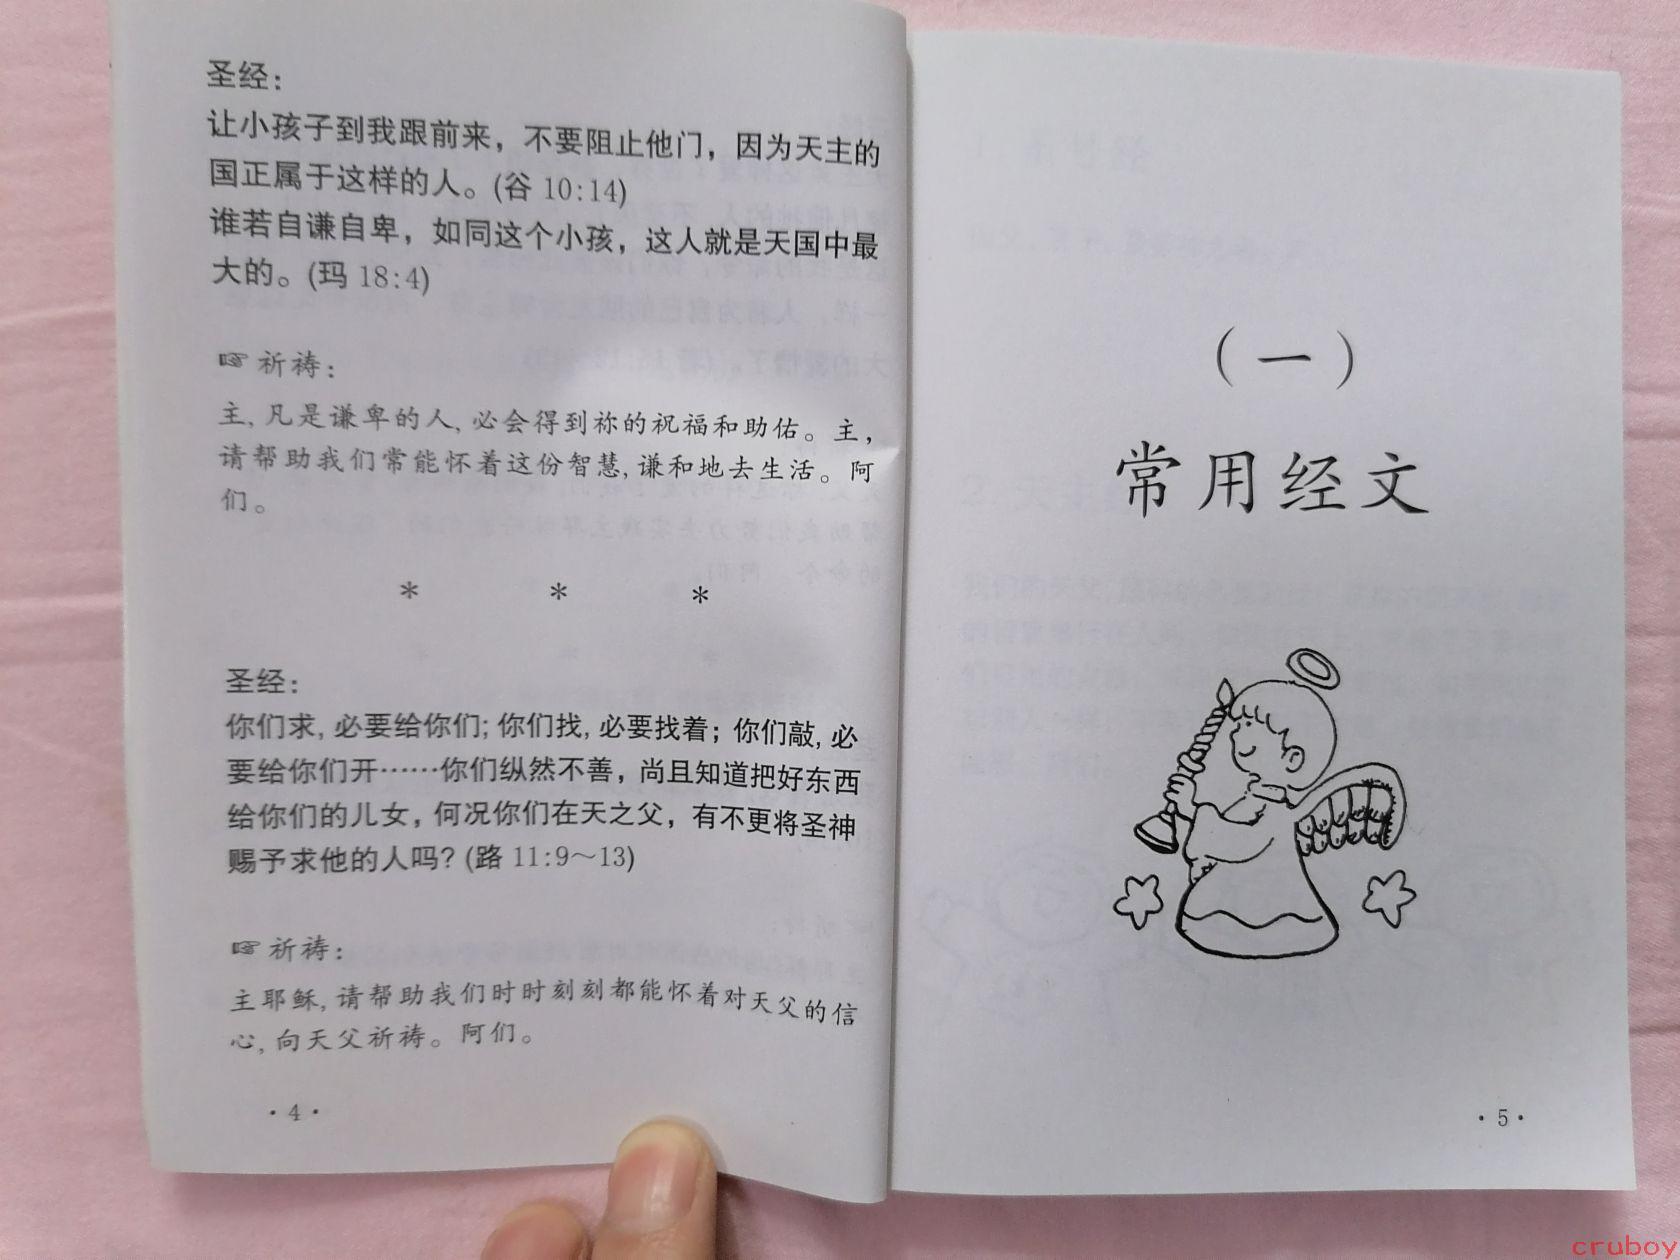 圣经：
让小孩子到我跟前来，不要阻止他门，因为天主的
国正属于这样的人。(谷 10:14)
谁若自谦自卑，如同这个小孩，这人就是天国中最
大的。(玛 18:4)
☞ 祈祷：
主,凡是谦卑的人,必会得到祢的祝福和助佑。主，
请帮助我们常能怀着这份智慧,谦和地去生活。阿
们。
* * *
圣经：
你们求,必要给你们;你们找,必要找着；你们敲,必
要给你们开……你们纵然不善，尚且知道把好东西
给你们的儿女，何况你们在天之父，有不更将圣神
赐予求他的人吗？(路 11:9～13)
☞ 祈祷：
主耶稣,请帮助我们时时刻刻都能怀着对天父的信
心,向天父祈祷。阿们。
·4·
（一）
常用经文
·5·
cruboy